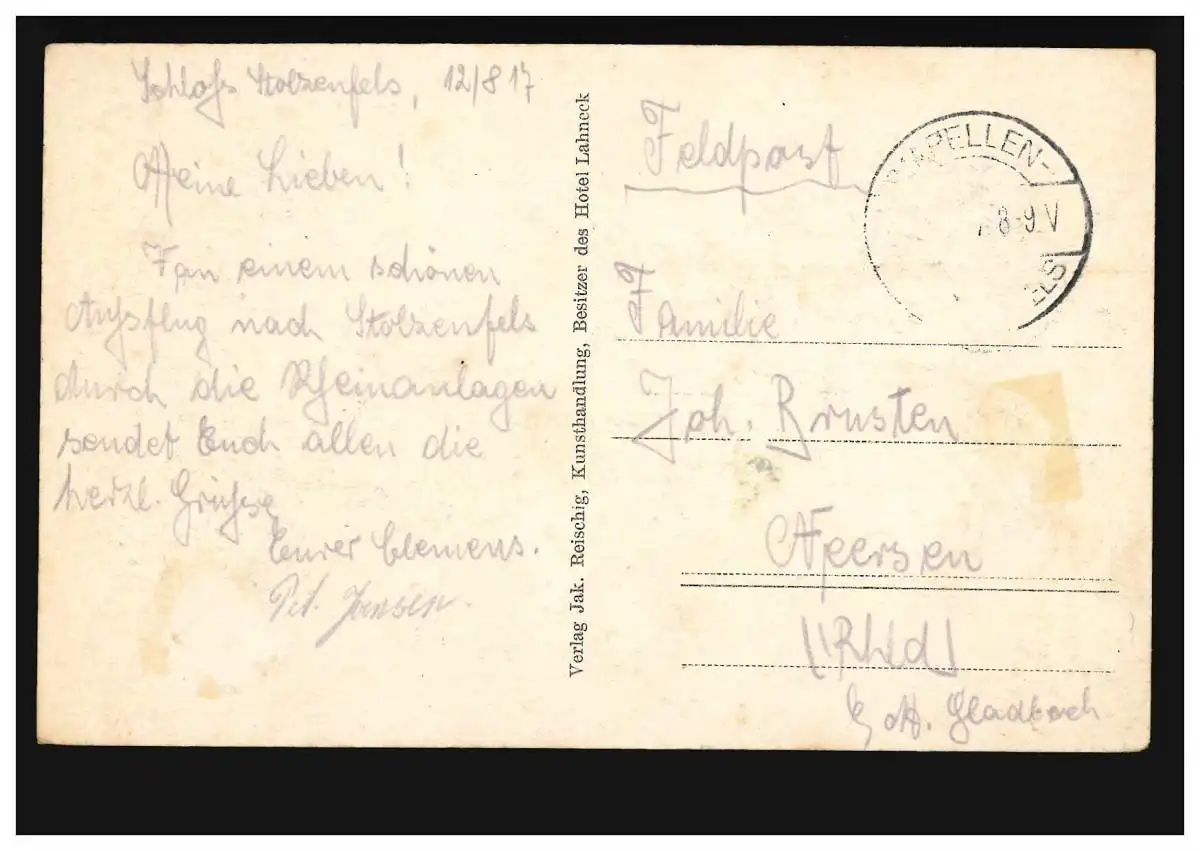 Schloss Stolzenfels, 12/8 17
Meine Lieben!
Von einem schönen
Ausflug nach Stolzenfels
durch die Rheinanlagen
sendet Euch allen die
herzl. Grüsse
Eurer Clemens.
Pet. Jansen.
Verlag Jak. Reischig, Kunsthandlung, Besitzer des Hotel Lahneck
Feldpost
CAPELLEN-
8-9 V
ELS
Familie
Joh. Brusten
Neersen
(Rhld)
b/ M. Gladbach